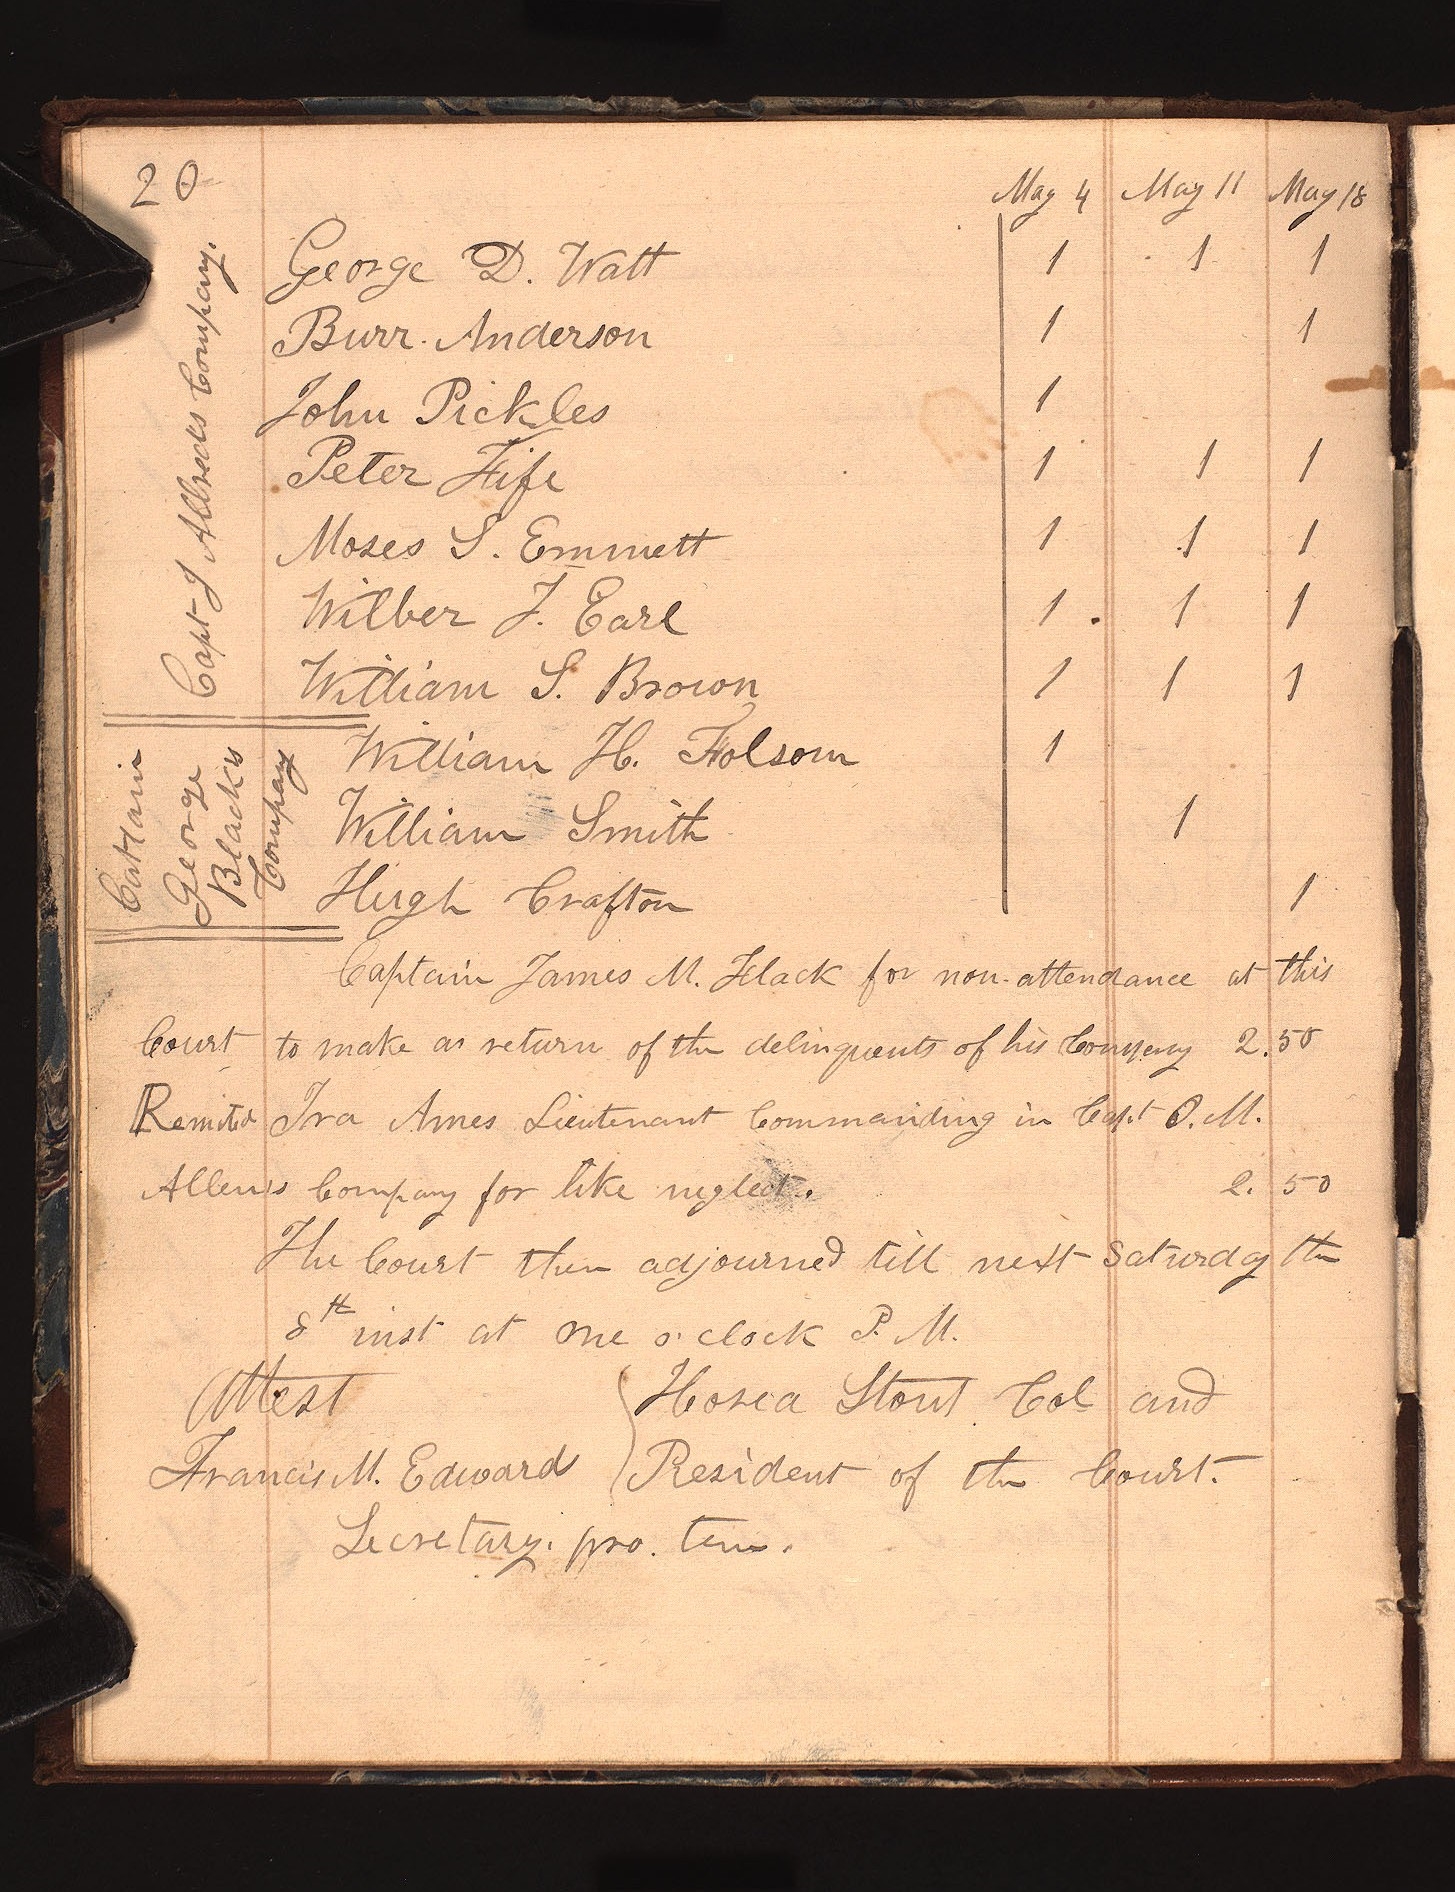 20
May 4 May 11 May 18
Capt J Allreds Company.
George D. Watt 1 1 1
Burr. Anderson 1 1
John Pickles 1
Peter Fife 1 1 1
Moses S. Emmett 1 1 1
Wilber J. Earl 1 1 1
William S. Brown 1 1 1
Captain
George
Black's
Company
William H. Folsom 1
William Smith 1
Hugh Crafton 1
Captain James M. Flack for non-attendance at this
Court to make a return of the delinquents of his Company 2.50
Remited Ira Ames Lieutenant Commanding in Capt O. M.
Allen's Company for like neglect. 2. 50
The Court then adjourned till next Saturday the
8th inst at one o'clock P. M.
Attest
Hosea Stout Col and
Francis M. Edward
President of the Court.
Secretary. pro. tem.